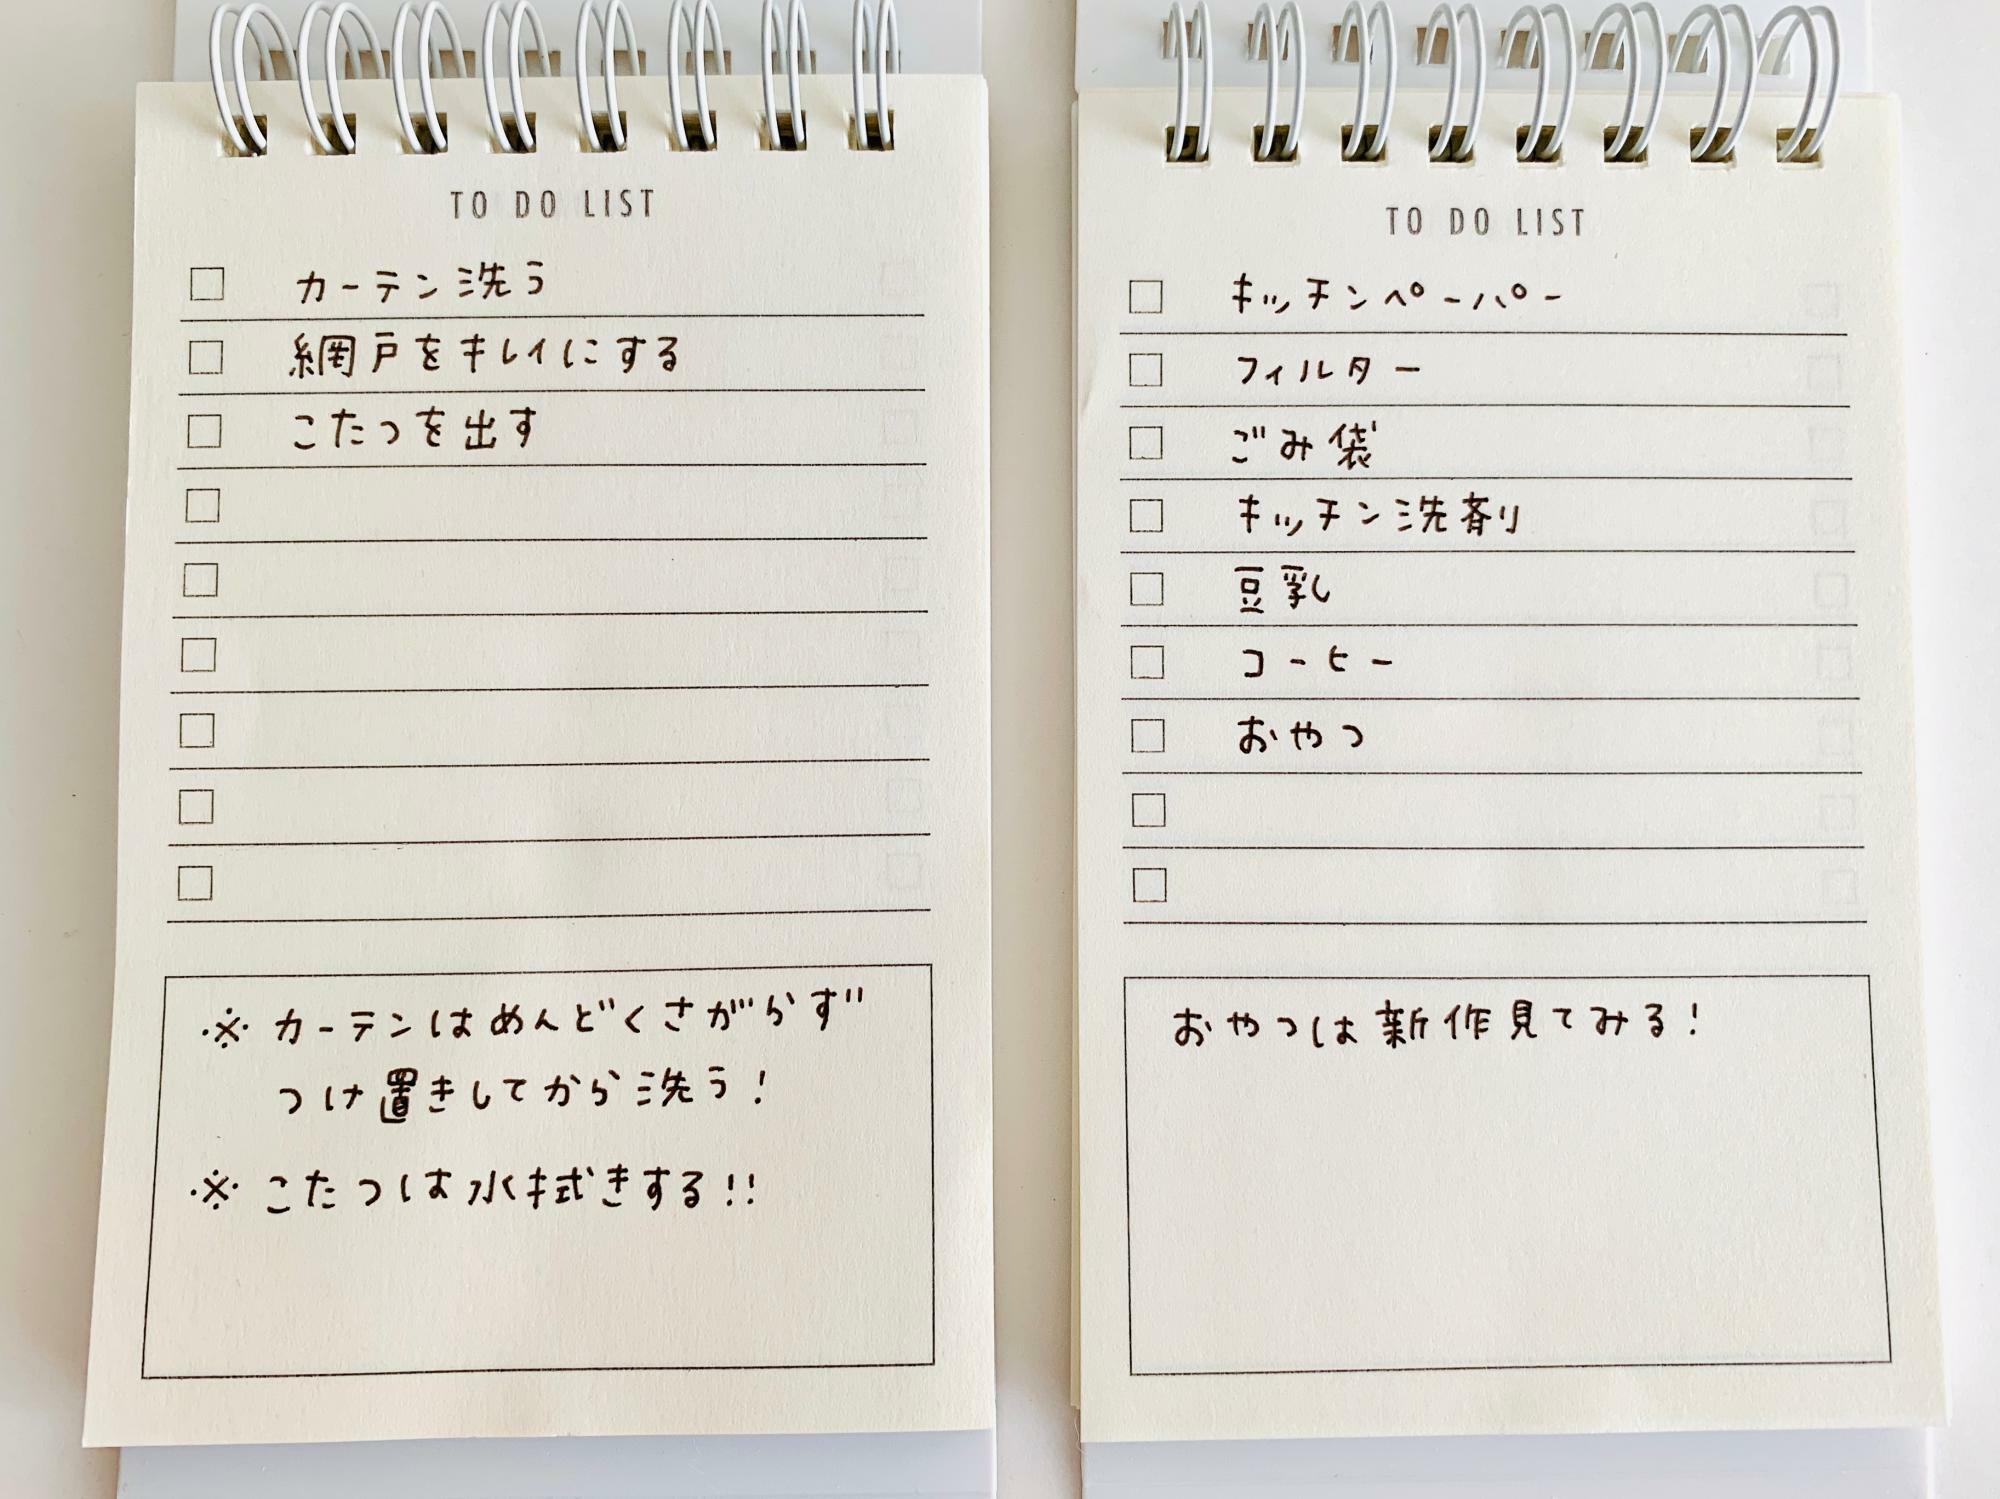 TO DO LIST
カーテン洗う
網戸をキレイにする
こたつを出す
※カーテンはめんどくさがらず
つけ置きしてから洗う!
※こたつは水拭きする!!
TO DO LIST
キッチンペーパー
フィルター
ごみ袋
キッチン洗剤
豆乳
コーヒー
おやつ
おやつは新作見てみる!